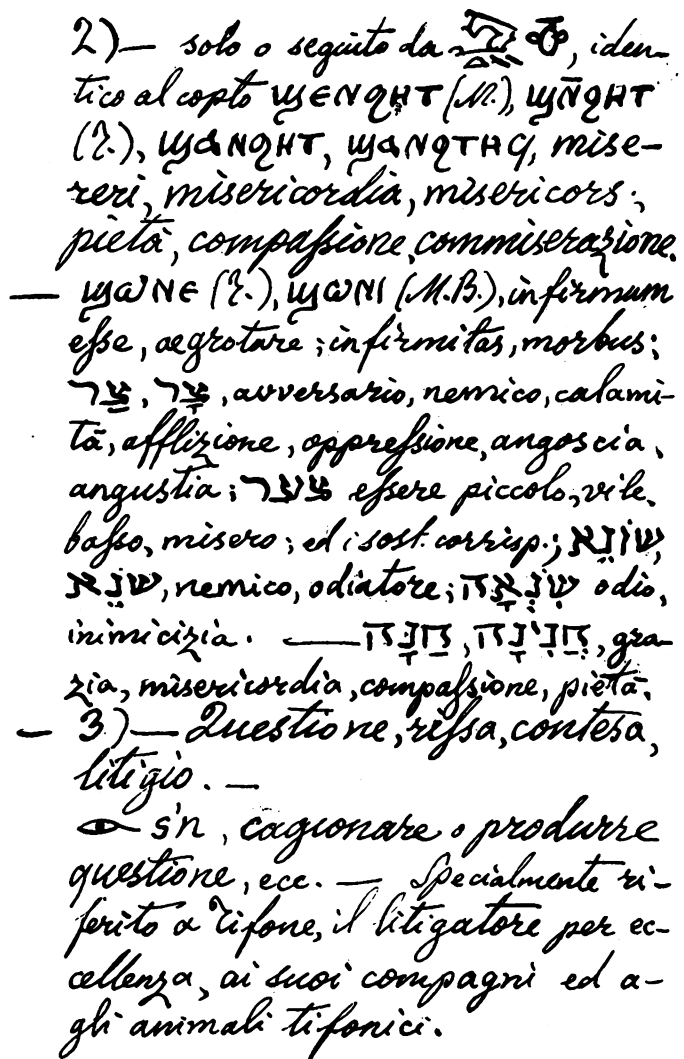 2) — solo o seguito da , iden-
tico al copto ϣⲉⲛϩⲏⲧ (M.), ϣⲛ̄ϩⲏⲧ
(T.), ϣⲁⲛϩⲏⲧ, ϣⲁⲛϩⲧⲏϥ, mise-
reri, misericordia, misericors;
pietà, compaſsione, commiserazione.
— ϣⲱⲛⲉ (T.), ϣⲱⲛⲓ (M.B.), infirmum
eſse, aegrotare; infirmitas, morbus;
צַר, צָר, avversario, nemico, calami-
tà, afflizione, oppreſsione, angoscia,
angustia; צער eſsere piccolo, vile,
baſso, misero; ed i sost. corrisp.; שׂוֹנֵא,
שׂנֵא, nemico, odiatore; שִׂנְאָה odio,
inimicizia. — חַנָּה, חֲנִינָה, gra-
zia, misericordia, compaſsione, pietà.
— 3) — Questione, riſsa, contesa,
litigio. —
s'n, cagionare o produrre
questione, ecc. — Specialmente ri-
ferito a Tifone, il litigatore per ec-
cellenza, ai suoi compagni ed a-
gli animali tifonici.